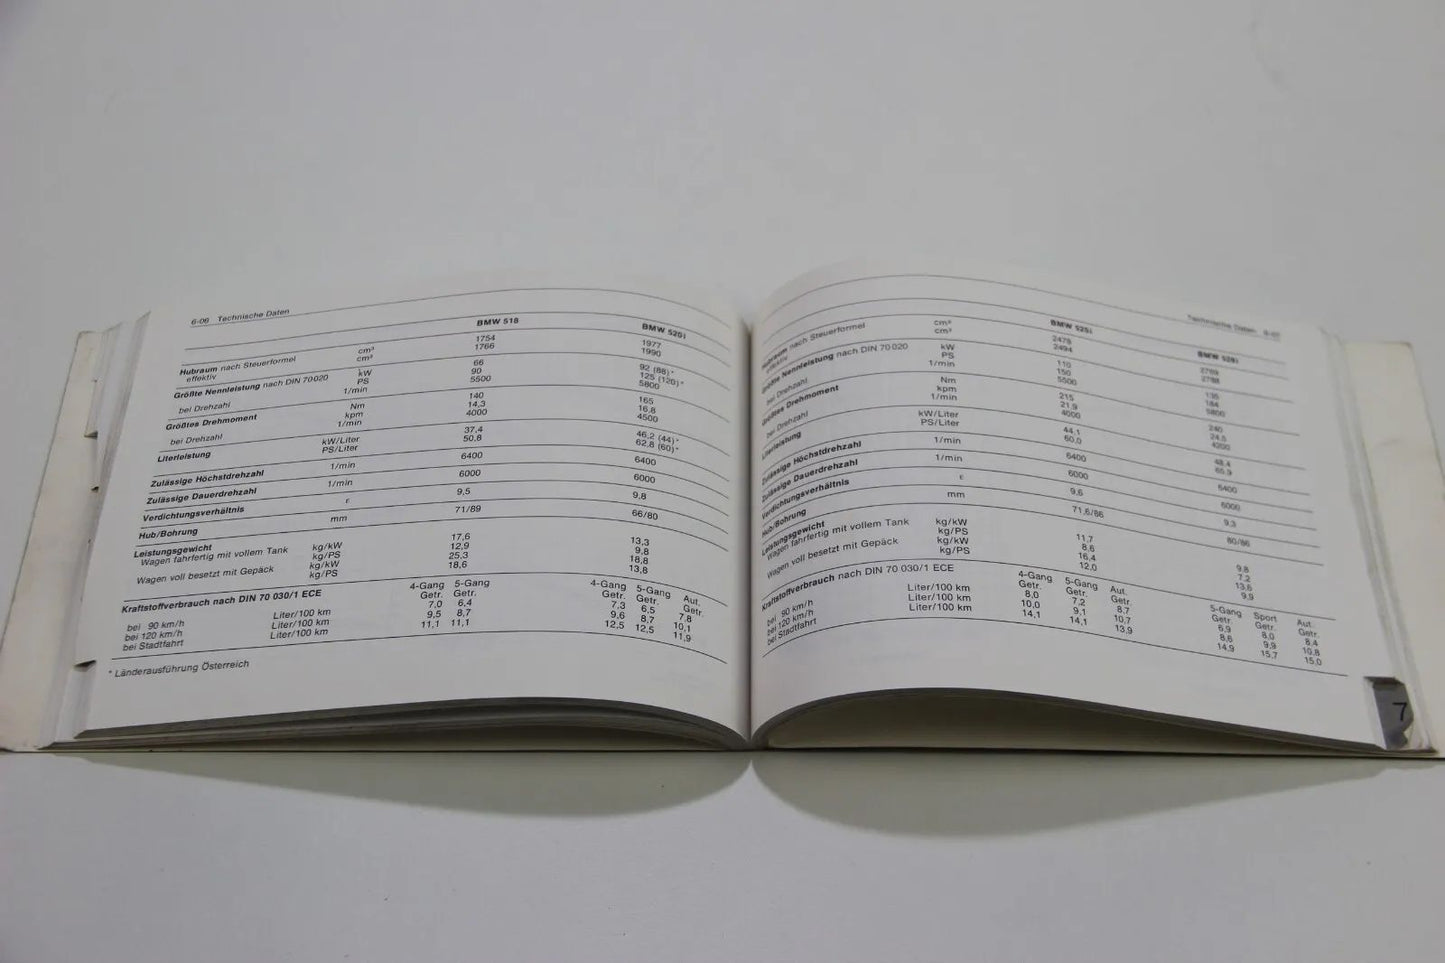 6-06 Technische Daten
BMW 518 BMW 520i
Hubraum nach Steuerformel cm³ 1754 1977
effektiv cm³ 1766 1990
Größte Nennleistung nach DIN 70020 kW 66 92 (88)*
PS 90 125 (120)*
bei Drehzahl 1/min 5500 5800
Größtes Drehmoment Nm 140 165
kpm 14,3 16,8
bei Drehzahl 1/min 4000 4500
Literleistung kW/Liter 37,4 46,2 (44)*
PS/Liter 50,8 62,8 (60)*
Zulässige Höchstdrehzahl 1/min 6400 6400
Zulässige Dauerdrehzahl 1/min 6000 6000
Verdichtungsverhältnis ε 9,5 9,8
Hub/Bohrung mm 71/89 66/80
Leistungsgewicht
Wagen fahrfertig mit vollem Tank kg/kW 17,6 13,3
kg/PS 12,9 9,8
Wagen voll besetzt mit Gepäck kg/kW 25,3 18,8
kg/PS 18,6 13,8
Kraftstoffverbrauch nach DIN 70 030/1 ECE 4-Gang 5-Gang 4-Gang 5-Gang Aut.
Getr. Getr. Getr. Getr. Getr.
bei 90 km/h Liter/100 km 7,0 6,4 7,3 6,5 7,8
bei 120 km/h Liter/100 km 9,5 8,7 9,6 8,7 10,1
bei Stadtfahrt Liter/100 km 11,1 11,1 12,5 12,5 11,9
* Länderausführung Österreich
Technische Daten 6-07
BMW 525i BMW 528i
Hubraum nach Steuerformel cm³ 2478 2769
effektiv cm³ 2494 2788
Größte Nennleistung nach DIN 70020 kW 110 135
PS 150 184
bei Drehzahl 1/min 5500 5800
Größtes Drehmoment Nm 215 240
kpm 21,9 24,5
bei Drehzahl 1/min 4000 4200
Literleistung kW/Liter 44,1 48,4
PS/Liter 60,0 65,9
Zulässige Höchstdrehzahl 1/min 6400 6400
Zulässige Dauerdrehzahl 1/min 6000 6000
Verdichtungsverhältnis ε 9,6 9,3
Hub/Bohrung mm 71,6/86 80/86
Leistungsgewicht
Wagen fahrfertig mit vollem Tank kg/kW 11,7 9,8
kg/PS 8,6 7,2
Wagen voll besetzt mit Gepäck kg/kW 16,4 13,6
kg/PS 12,0 9,9
Kraftstoffverbrauch nach DIN 70 030/1 ECE 4-Gang 5-Gang Aut. 5-Gang Sport Aut.
Getr. Getr. Getr. Getr. Getr. Getr.
bei 90 km/h Liter/100 km 8,0 7,2 8,7 6,9 8,0 8,4
bei 120 km/h Liter/100 km 10,0 9,1 10,7 8,6 9,9 10,8
bei Stadtfahrt Liter/100 km 14,1 14,1 13,9 14,9 15,7 15,0
7